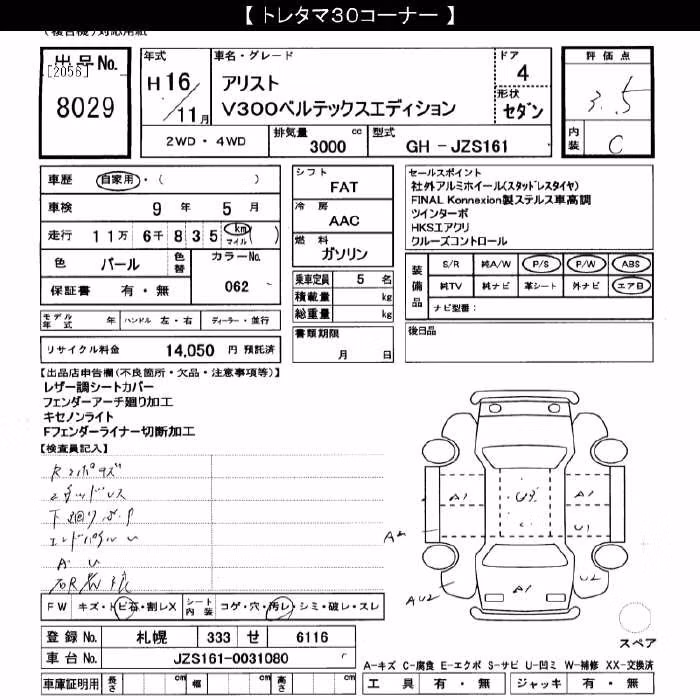 【 トレタマ30コーナー 】
(複合機)対応用紙
出品No.
[2056]
8029
年式
H16/11月
車名・グレード
アリスト
V300ベルテックスエディション
ドア
4
形状
セダン
評価点
3.5
内装
C
2WD・4WD
排気量
3000 cc
型式
GH-JZS161
車歴 自家用・( )
車検 9年 5月
走行 11万 6千 835 km マイル )
色 パール 色替
カラーNo.
062
保証書 有・無
モデル年式 年 ハンドル 左・右 ディーラー・並行
リサイクル料金 14,050 円 預託済
シフト
FAT
冷房
AAC
燃料
ガソリン
乗車定員 5 名
積載量 kg
総重量 kg
書類期限
月 日
セールスポイント
社外アルミホイール(スタッドレスタイヤ)
FINAL Konnexion製ステルス車高調
ツインターボ
HKSエアクリ
クルーズコントロール
装備品
S/R 純A/W P/S P/W ABS
純TV 純ナビ 革シート 外ナビ エアB
ナビ型番:
後日品
【出品店申告欄(不良箇所・欠品・注意事項等)】
レザー調シートカバー
フェンダーアーチ廻り加工
キセノンライト
Fフェンダーライナー切断加工
【検査員記入】
スタッドレス
A・U
A1
A1
U1
U2
AU2
A1
FW キズ・トビ石・割レX
シート内装 コゲ・穴・汚レ・シミ・破レ・スレ
登録No. 札幌 333 せ 6116
車台No. JZS161-0031080
車庫証明用 長さ cm 幅 cm 高さ cm
スペア
A-キズ C-腐食 E-エクボ S-サビ U-凹ミ W-補修 XX-交換済
工具 有・無 ジャッキ 有・無